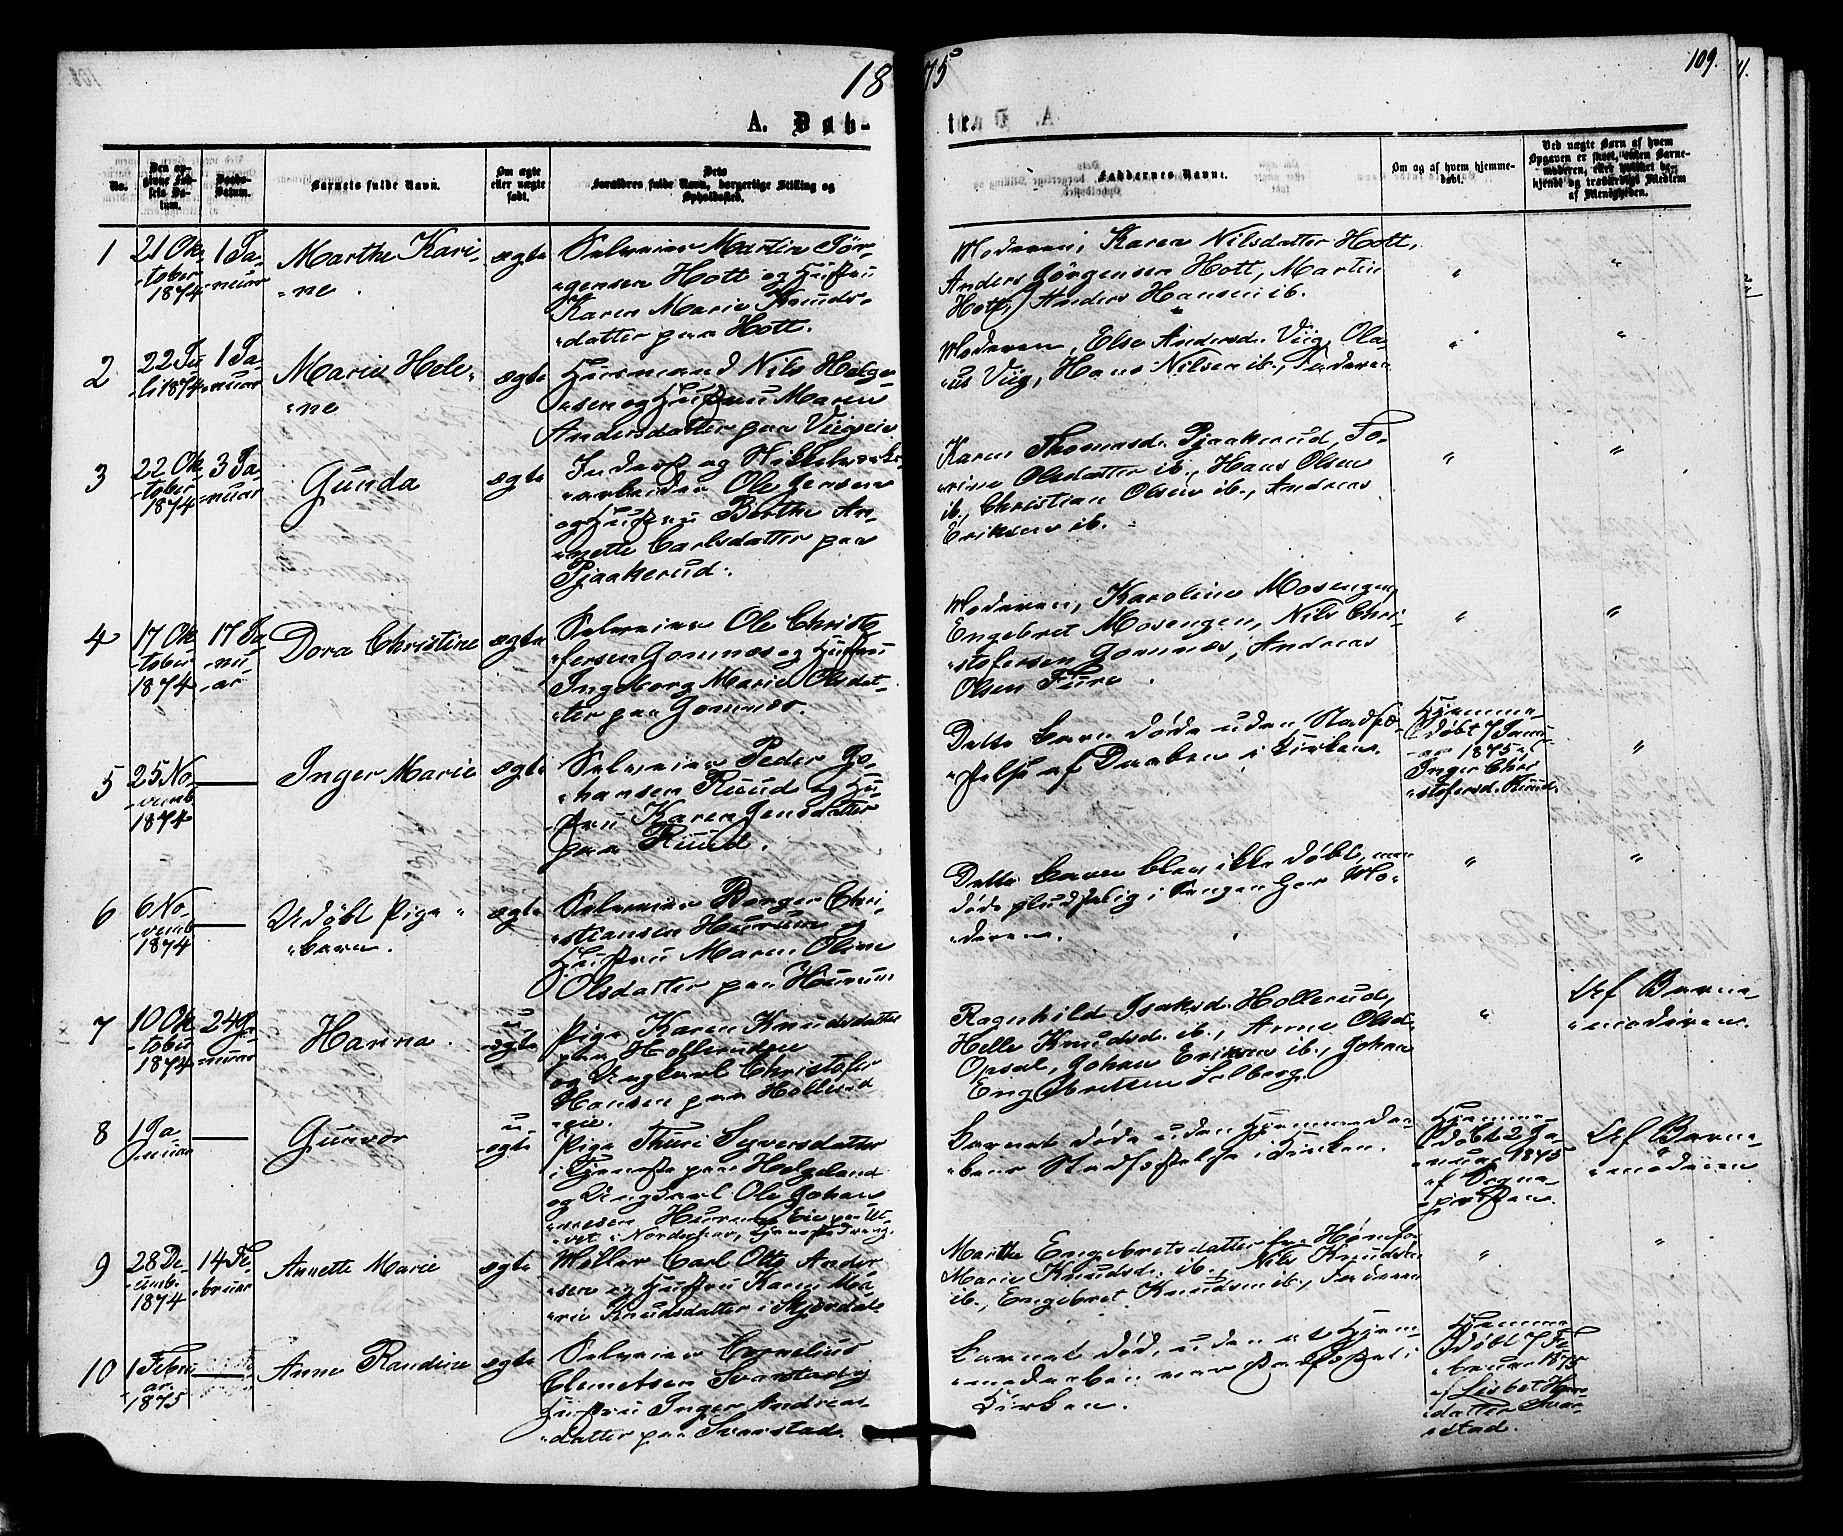 1875
109.
A. Døbte.
No.
Den opgivne Fødsels Datum.
Daabs-Datum.
Barnets fulde Navn.
Om ægte eller uægte født.
Dets Forældres fulde Navn, borgerlige Stilling og Opholdssted.
Faddernes Navne.
Om og af hvem hjemmedøbt.
Ved uægte Børn af hvem Opgaven er skeet, enten Barnemoderen, eller hvilket bekjendt og troværdigt Medlem af Menigheden.
1
21 Ok-
-tober
1874
1 Ja-
-nuar
Marthe Kari-
-ne.
ægte
Selveier Martin Jør-
-gensen Hott og Hustru
Karen Marie Knuds-
-datter paa Hott.
Moderen, Karen Nilsdatter Hott,
Anders Jörgensen Hott, Martin
Hott, Anders Hansen ib.
"
"
2
22 Ju-
-li 1874
1 Ja-
-nuar
Maria Hele-
-ne
ægte
Huusmand Nils Helge-
-sen og Hustru Maren
Andersdatter paa Viigseie
Moderen, Else Andersd. Viig, Ola-
-us Viig, Hans Nilsen ib., Faderen
"
"
3
22 Ok-
-tober
1874
3 Ja-
-nuar
Gunda
ægte
Inderst og Nikkelværks-
-arbeider Ole Jensen
og Hustru Berthe An-
-nette Carlsdatter paa
Pjaakerud.
Karen Thomasd. Pjaakerud, To-
-rine Olsdatter ib., Hans Olsen
ib., Christian Olsen ib., Andreas
Eriksen ib.
"
"
4
17 Ok-
-tober
1874
17 Ja-
-nu-
-ar
Dora Christine
ægte
Selveier Ole Christo-
-fersen Gomnæs og Hustru
Ingeborg Marie Olsdat-
-ter paa Gomnæs.
Moderen, Karoline Mosengen,
Engebret Mosengen, Nils Chri-
-stofersen Gomnæs, Andreas
Olsen Fure.
"
"
5
25 No-
-vemb
1874
Inger Marie
ægte
Selveier Peder Jo-
-hansen Ruud og Hu-
-stru Karen Jensdatter
paa Ruud.
Dette Barn døde uden Stadfæ-
-stelse af Daaben i Kirken.
Hjemme-
døbt 7 Janu-
-ar 1875 af
Inger Chri-
-stofersd. Ruud.
"
6
6 No-
-vemb
1874
Udöbt Pige-
-barn.
ægte
Selveier Borger Chri-
-stiansen Hurum
Hustru Maren Oline
Olsdatter paa Hurum
Dette Barn blev ikke døbt, men
døde pludselig i Sengen hos Mo-
-deren.
"
"
7
10 Ok-
-tober
1874
24 Ja-
-nuar
Hanna.
u-
-ægte
Pige Karen Knudsdatter
paa Hollerudeie
og Ungkarl Christofer
Hansen paa Hollerud
eie.
Ragnhild Isaksd. Hollerud,
Helle Knudsd. ib., Anne Olsd.
Opsal, Johan Eriksen ib., Johan
Engebretsen Solberg.
"
Af Barne-
-moderen.
8
1 Ja-
-nuar
Gunvor
u-
-ægte
Pige Thuri Syversdatter
i Tjeneste paa Helgeland
og Ungkarl Ole Johan-
-nesen Hurums Eie
i Norderhov, Tjenestedreng.
Barnet døde uden Hjemmedaa-
-bens Stadfæstelse i Kirken.
Hjemme-
døbt 2 Ja-
-nuar 1875
af Sogne-
-præsten.
Af Barne-
-moderen
9
28 De-
-cemb.
1874
14 Fe-
-bruar
Annette Marie
ægte
Møller Carl Otto Ander-
-sen og Hustru Karen Ma-
-rie Knudsdatter i Skjærdalen
Marthe Engebretsdatter fra Hønefos
Marie Knudsd. ib., Nils Knudsen
ib., Engebret Knudsen ib., Faderen
"
"
10
1 Febru-
-ar
1875
Anne Randine
ægte
Selveier Cornelius
Clemetsen Svarstad og
Hustru Inger Andreas-
-datter paa Svarstad.
Barnet døde uden at Hjem-
-medaaben var stadfæstet i
Kirken.
Hjemme-
døbt 7 Fe-
-bruar 1875
af Lisbet
-datter Svar-
-stad.